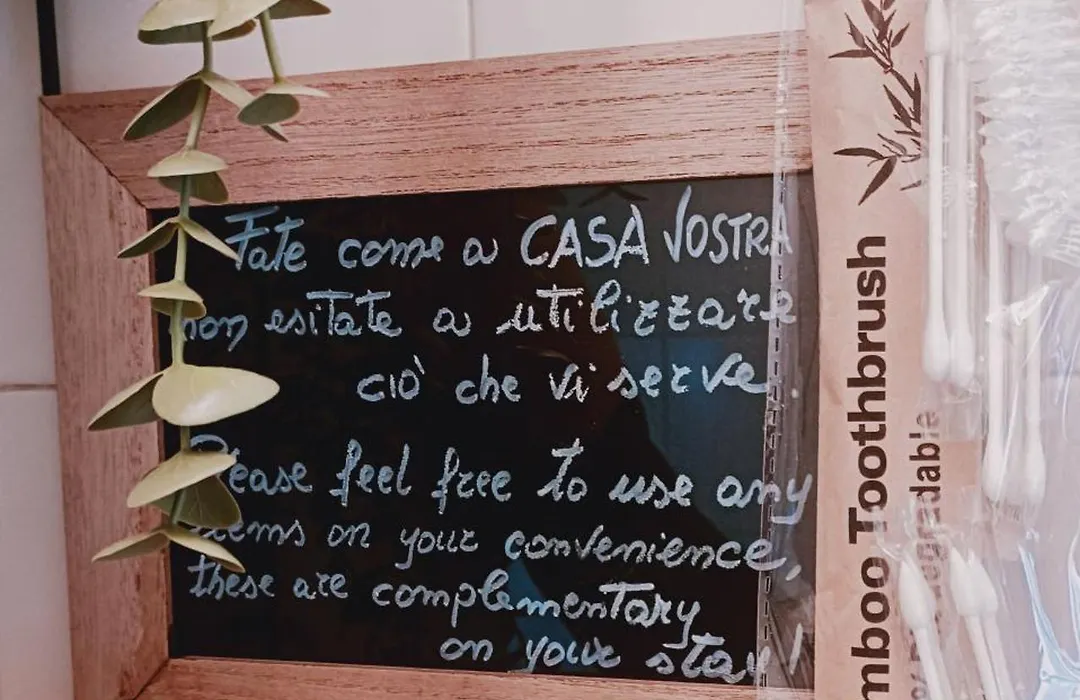 Fate come a CASA VOSTRA
non esitate a utilizzare
ciò che vi serve.
Please feel free to use any
items on your convenience,
these are complementary
on your stay!
mboo Toothbrush
degradable